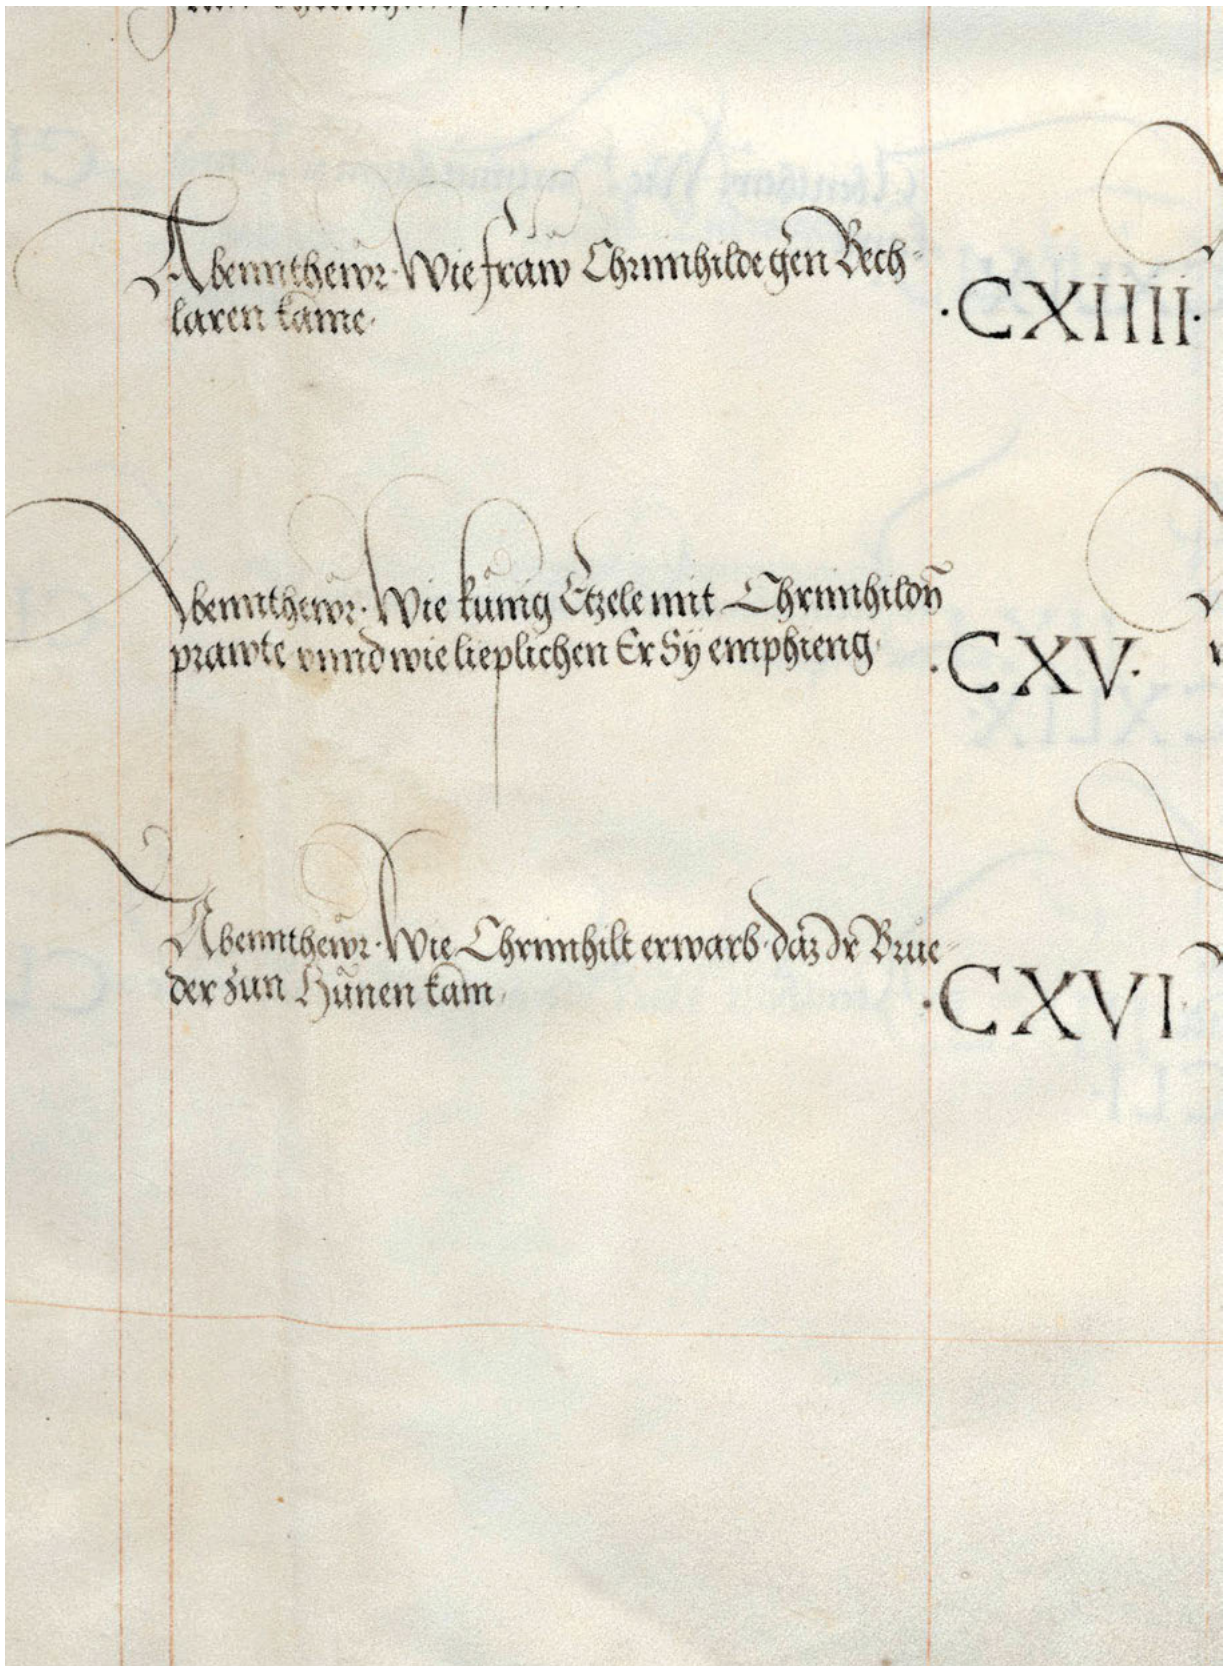 Abennthewr · Wie fraw Chrimhilde gen Bech-
laren kame ·
· CXIIII ·
Abennthewr · Wie kunig Etzele mit Chrimhildn̄
prawte vnnd wie lieplichen Er Sy emphieng ·
· CXV ·
Abennthewr · Wie Chrimhilt erwarb · daz Ir Brue-
der zun Hůnen kam ·
· CXVI ·